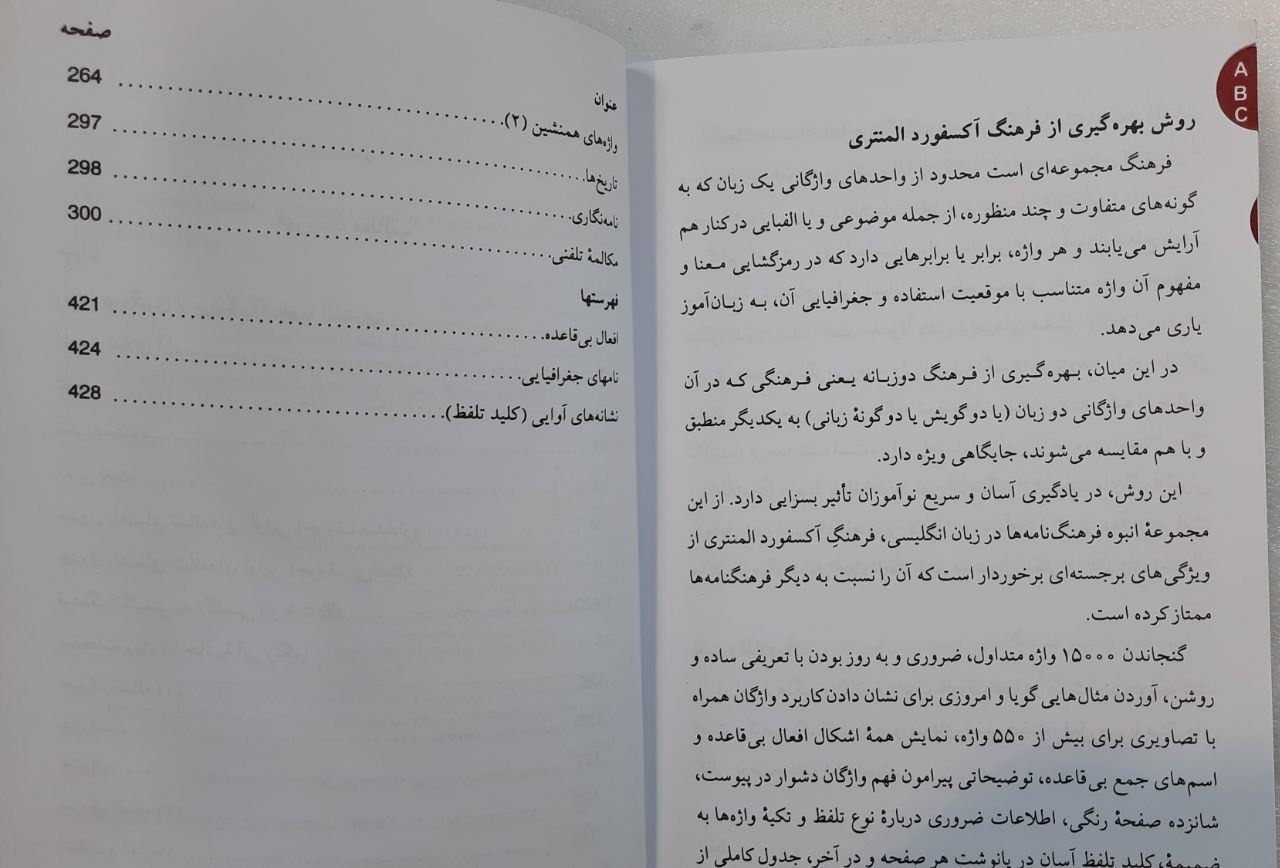 A
B
C
روش بهره‌گیری از فرهنگ آکسفورد المنتری
فرهنگ مجموعه‌ای است محدود از واحدهای واژگانی یک زبان که به
گونه‌های متفاوت و چند منظوره، از جمله موضوعی و یا الفبایی درکنار هم
آرایش می‌یابند و هر واژه، برابر یا برابرهایی دارد که در رمزگشایی معنا و
مفهوم آن واژه متناسب با موقعیت استفاده و جغرافیایی آن، به زبان‌آموز
یاری می‌دهد.
در این میان، بهره‌گیری از فرهنگ دوزبانه یعنی فرهنگی که در آن
واحدهای واژگانی دو زبان (یا دو گویش یا دو گونۀ زبانی) به یکدیگر منطبق
و با هم مقایسه می‌شوند، جایگاهی ویژه دارد.
این روش، در یادگیری آسان و سریع نوآموزان تأثیر بسزایی دارد. از این
مجموعۀ انبوه فرهنگ‌نامه‌ها در زبان انگلیسی، فرهنگِ آکسفورد المنتری از
ویژگی‌های برجسته‌ای برخوردار است که آن را نسبت به دیگر فرهنگنامه‌ها
ممتاز کرده است.
گنجاندن ۱۵۰۰۰ واژه متداول، ضروری و به روز بودن با تعریفی ساده و
روشن، آوردن مثال‌هایی گویا و امروزی برای نشان دادن کاربرد واژگان همراه
با تصاویری برای بیش از ۵۵۰ واژه، نمایش همۀ اشکال افعال بی‌قاعده و
اسم‌های جمع بی‌قاعده، توضیحاتی پیرامون فهم واژگان دشوار در پیوست،
شانزده صفحۀ رنگی، اطلاعات ضروری دربارۀ نوع تلفظ و تکیۀ واژه‌ها به
ضمیمۀ، کلید تلفظ آسان در پانوشت هر صفحه و در آخر، جدول کاملی از
صفحه
عنوان
واژه‌های همنشین (۲)........................................ 264
تاریخ‌ها........................................ 297
نامه‌نگاری........................................ 298
مکالمۀ تلفنی........................................ 300
فهرستها
افعال بی‌قاعده........................................ 421
نامهای جغرافیایی........................................ 424
نشانه‌های آوایی (کلید تلفظ)........................................ 428